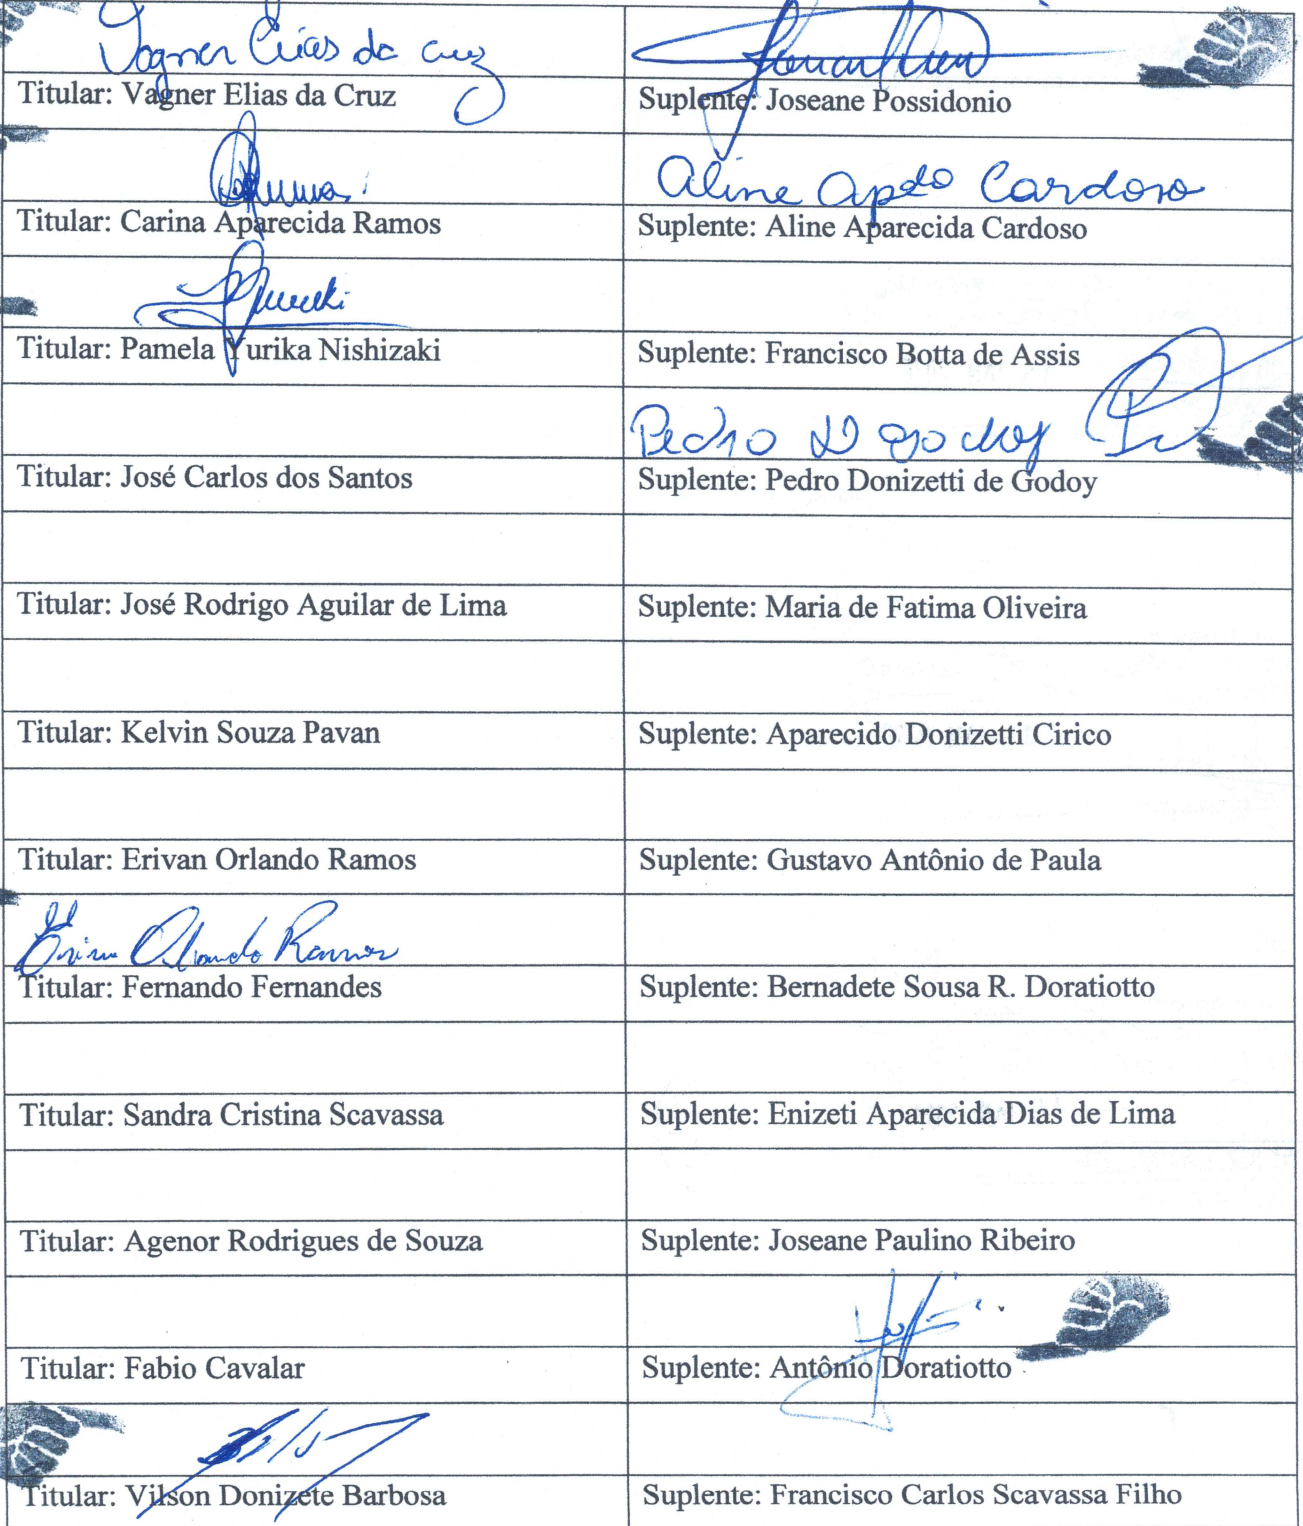 Vagner Elias da Cruz
Titular: Vagner Elias da Cruz
Suplente: Joseane Possidonio
Aline Apdo Cardoso
Titular: Carina Aparecida Ramos
Suplente: Aline Aparecida Cardoso
Titular: Pamela Yurika Nishizaki
Suplente: Francisco Botta de Assis
Pedro D godoy
Titular: José Carlos dos Santos
Suplente: Pedro Donizetti de Godoy
Titular: José Rodrigo Aguilar de Lima
Suplente: Maria de Fatima Oliveira
Titular: Kelvin Souza Pavan
Suplente: Aparecido Donizetti Cirico
Titular: Erivan Orlando Ramos
Suplente: Gustavo Antônio de Paula
Orlando Ramos
Titular: Fernando Fernandes
Suplente: Bernadete Sousa R. Doratiotto
Titular: Sandra Cristina Scavassa
Suplente: Enizeti Aparecida Dias de Lima
Titular: Agenor Rodrigues de Souza
Suplente: Joseane Paulino Ribeiro
Titular: Fabio Cavalar
Suplente: Antônio Doratiotto
Titular: Vilson Donizete Barbosa
Suplente: Francisco Carlos Scavassa Filho